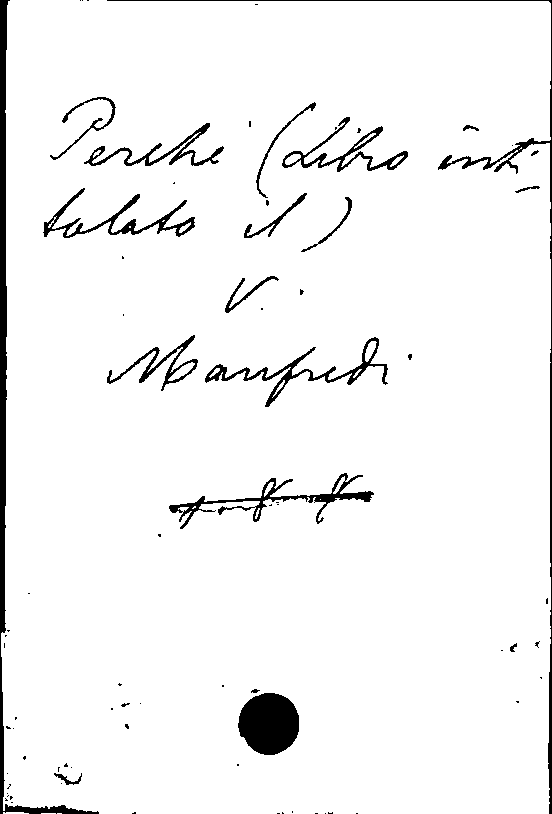 Perchè (Libro inti-
tolato il)
V.
Manfredi